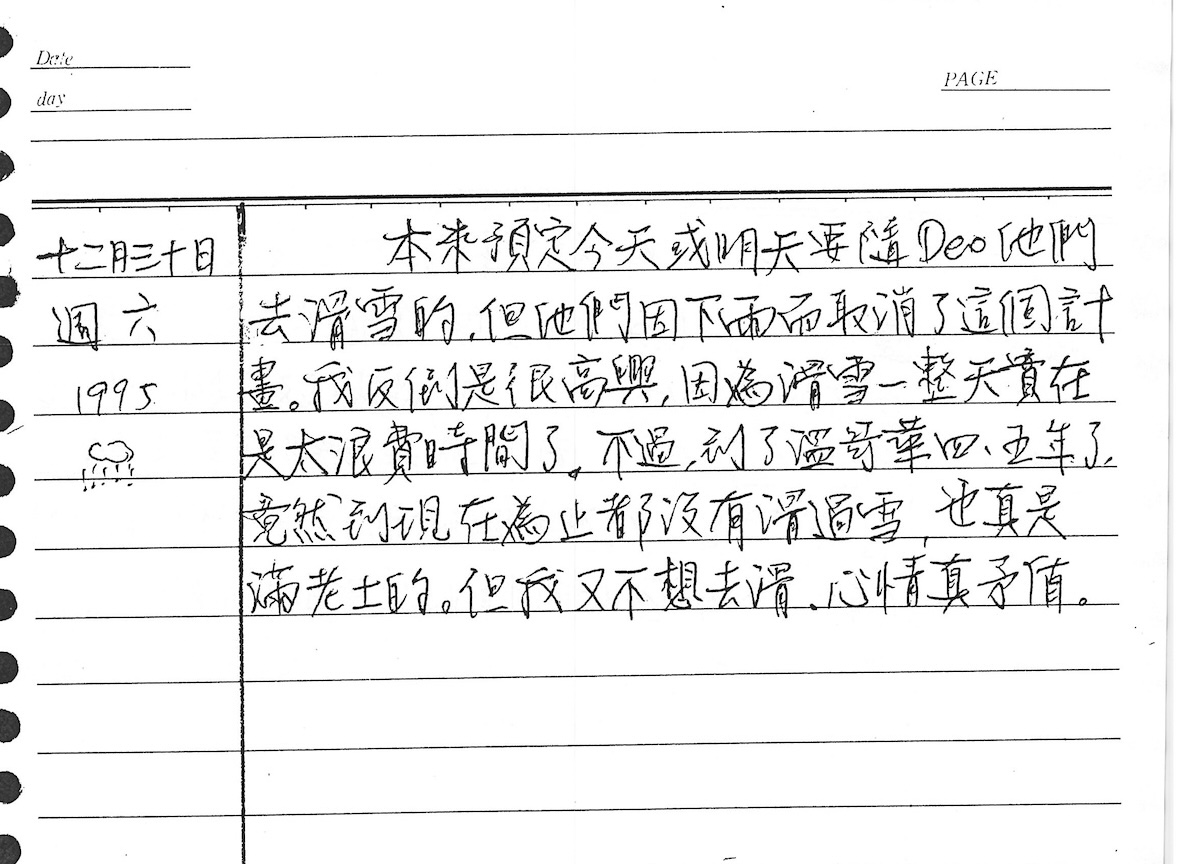 Date
day
PAGE
十二月三十日
週六
1995
本來預定今天或明天要隨Deo他們
去滑雪的,但他們因下雨而取消了這個計
畫。我反倒是很高興,因為滑雪一整天實在
是太浪費時間了。不過,到了溫哥華四、五年了,
竟然到現在為止都沒有滑過雪,也真是
滿老土的。但我又不想去滑、心情真矛值。